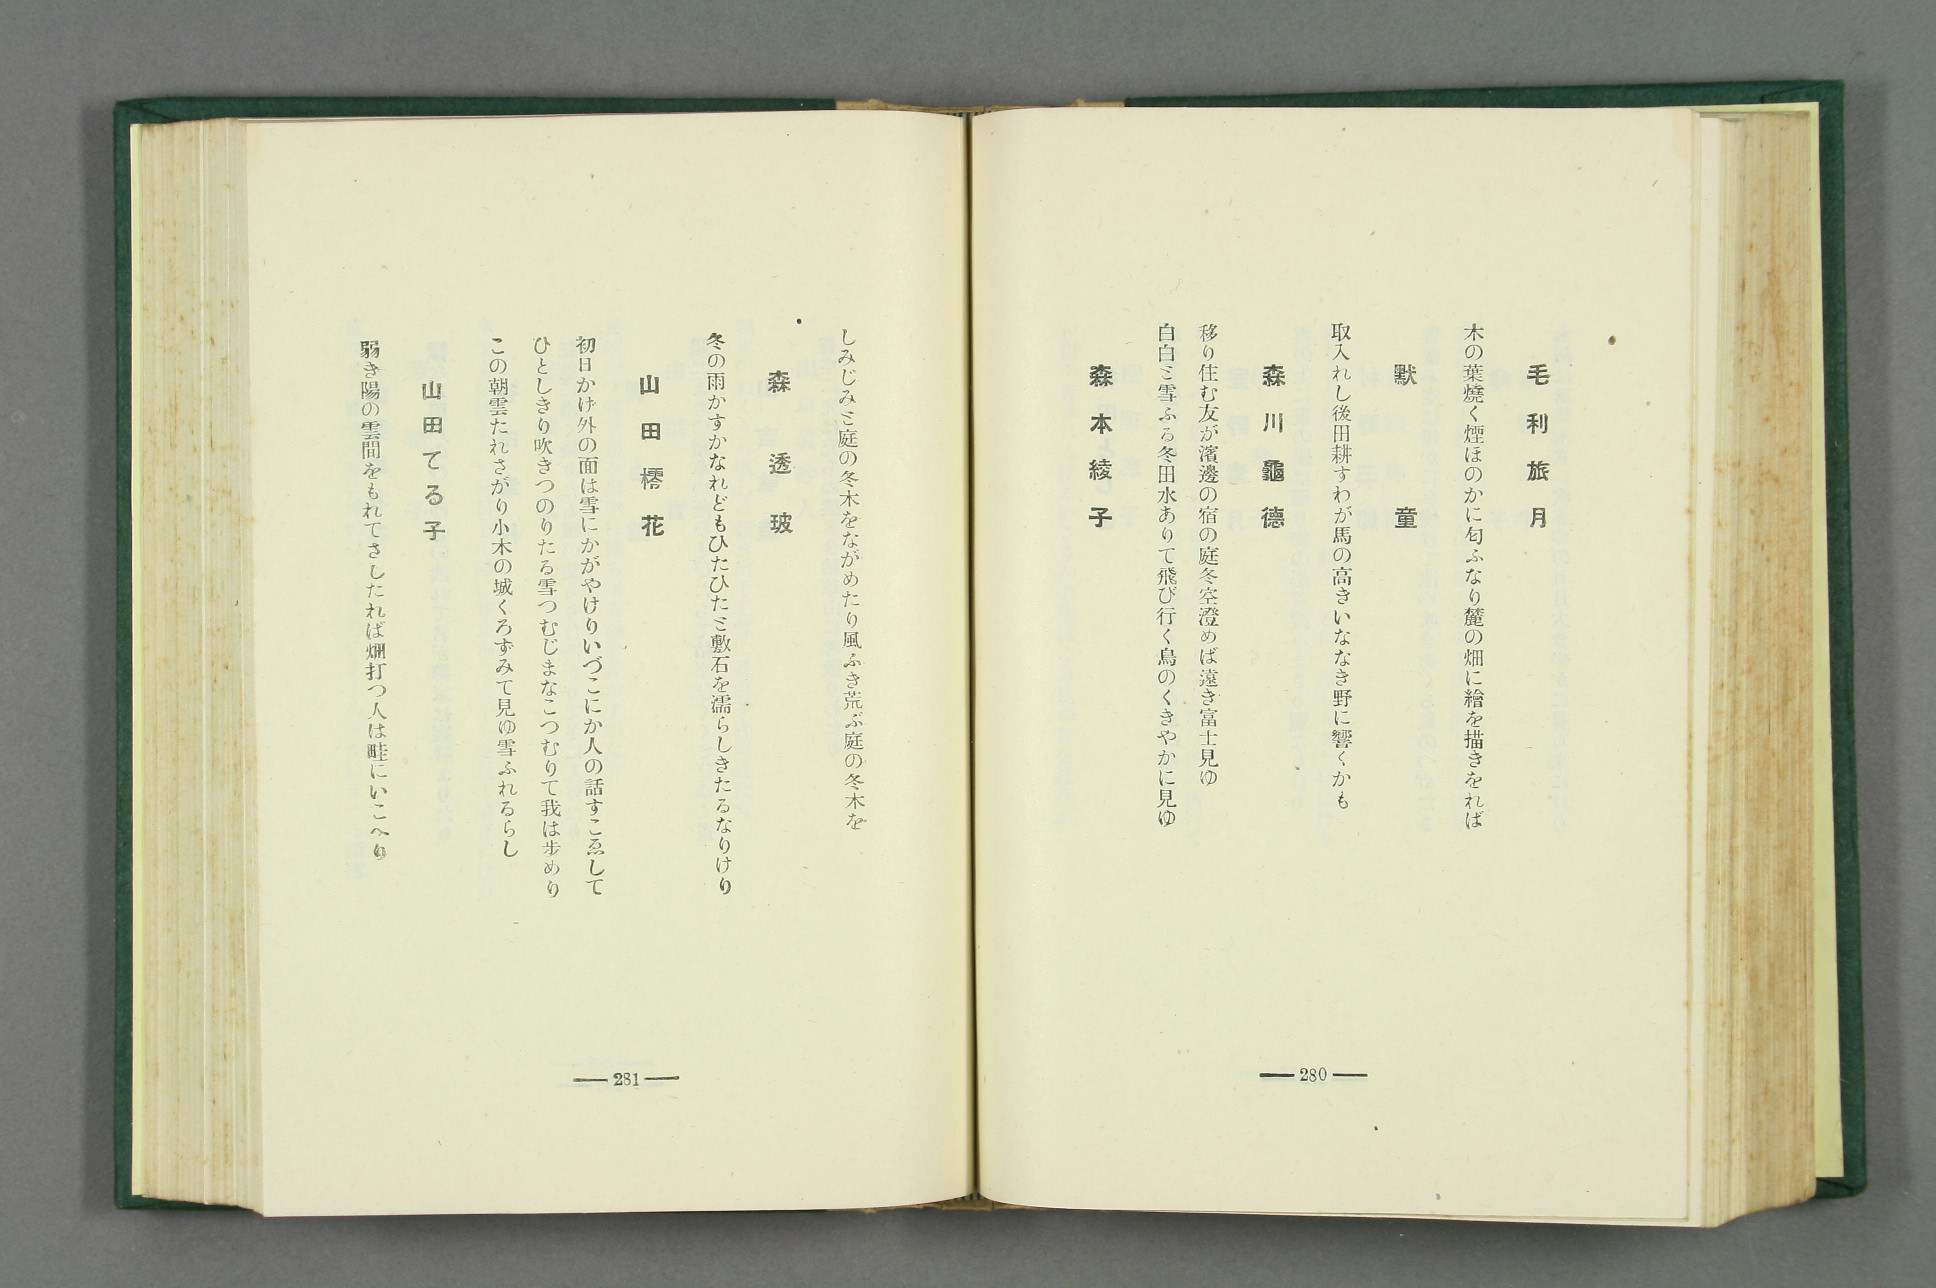 毛利旅月
木の葉燒く煙ほのかに匂ふなり麓の畑に繪を描きをれば
默童
取入れし後田耕すわが馬の高きいななき野に響くかも
森川龜德
移り住む友が濱邊の宿の庭冬空澄めば遠き富士見ゆ
白白と雪ふる冬田水ありて飛び行く鳥のくきやかに見ゆ
森本綾子
280
しみじみと庭の冬木をながめたり風ふき荒ぶ庭の冬木を
森透玻
冬の雨かすかなれどもひたひたと敷石を濡らしきたるなりけり
山田樗花
初日かげ外の面は雪にかがやけりいづこにか人の話すこゑして
ひとしきり吹きつのりたる雪つむじまなこつむりて我は歩めり
この朝雲たれさがり小木の城くろずみて見ゆ雪ふれるらし
山田てる子
弱き陽の雲間をもれてさしたれば畑打つ人は畦にいこへり
281